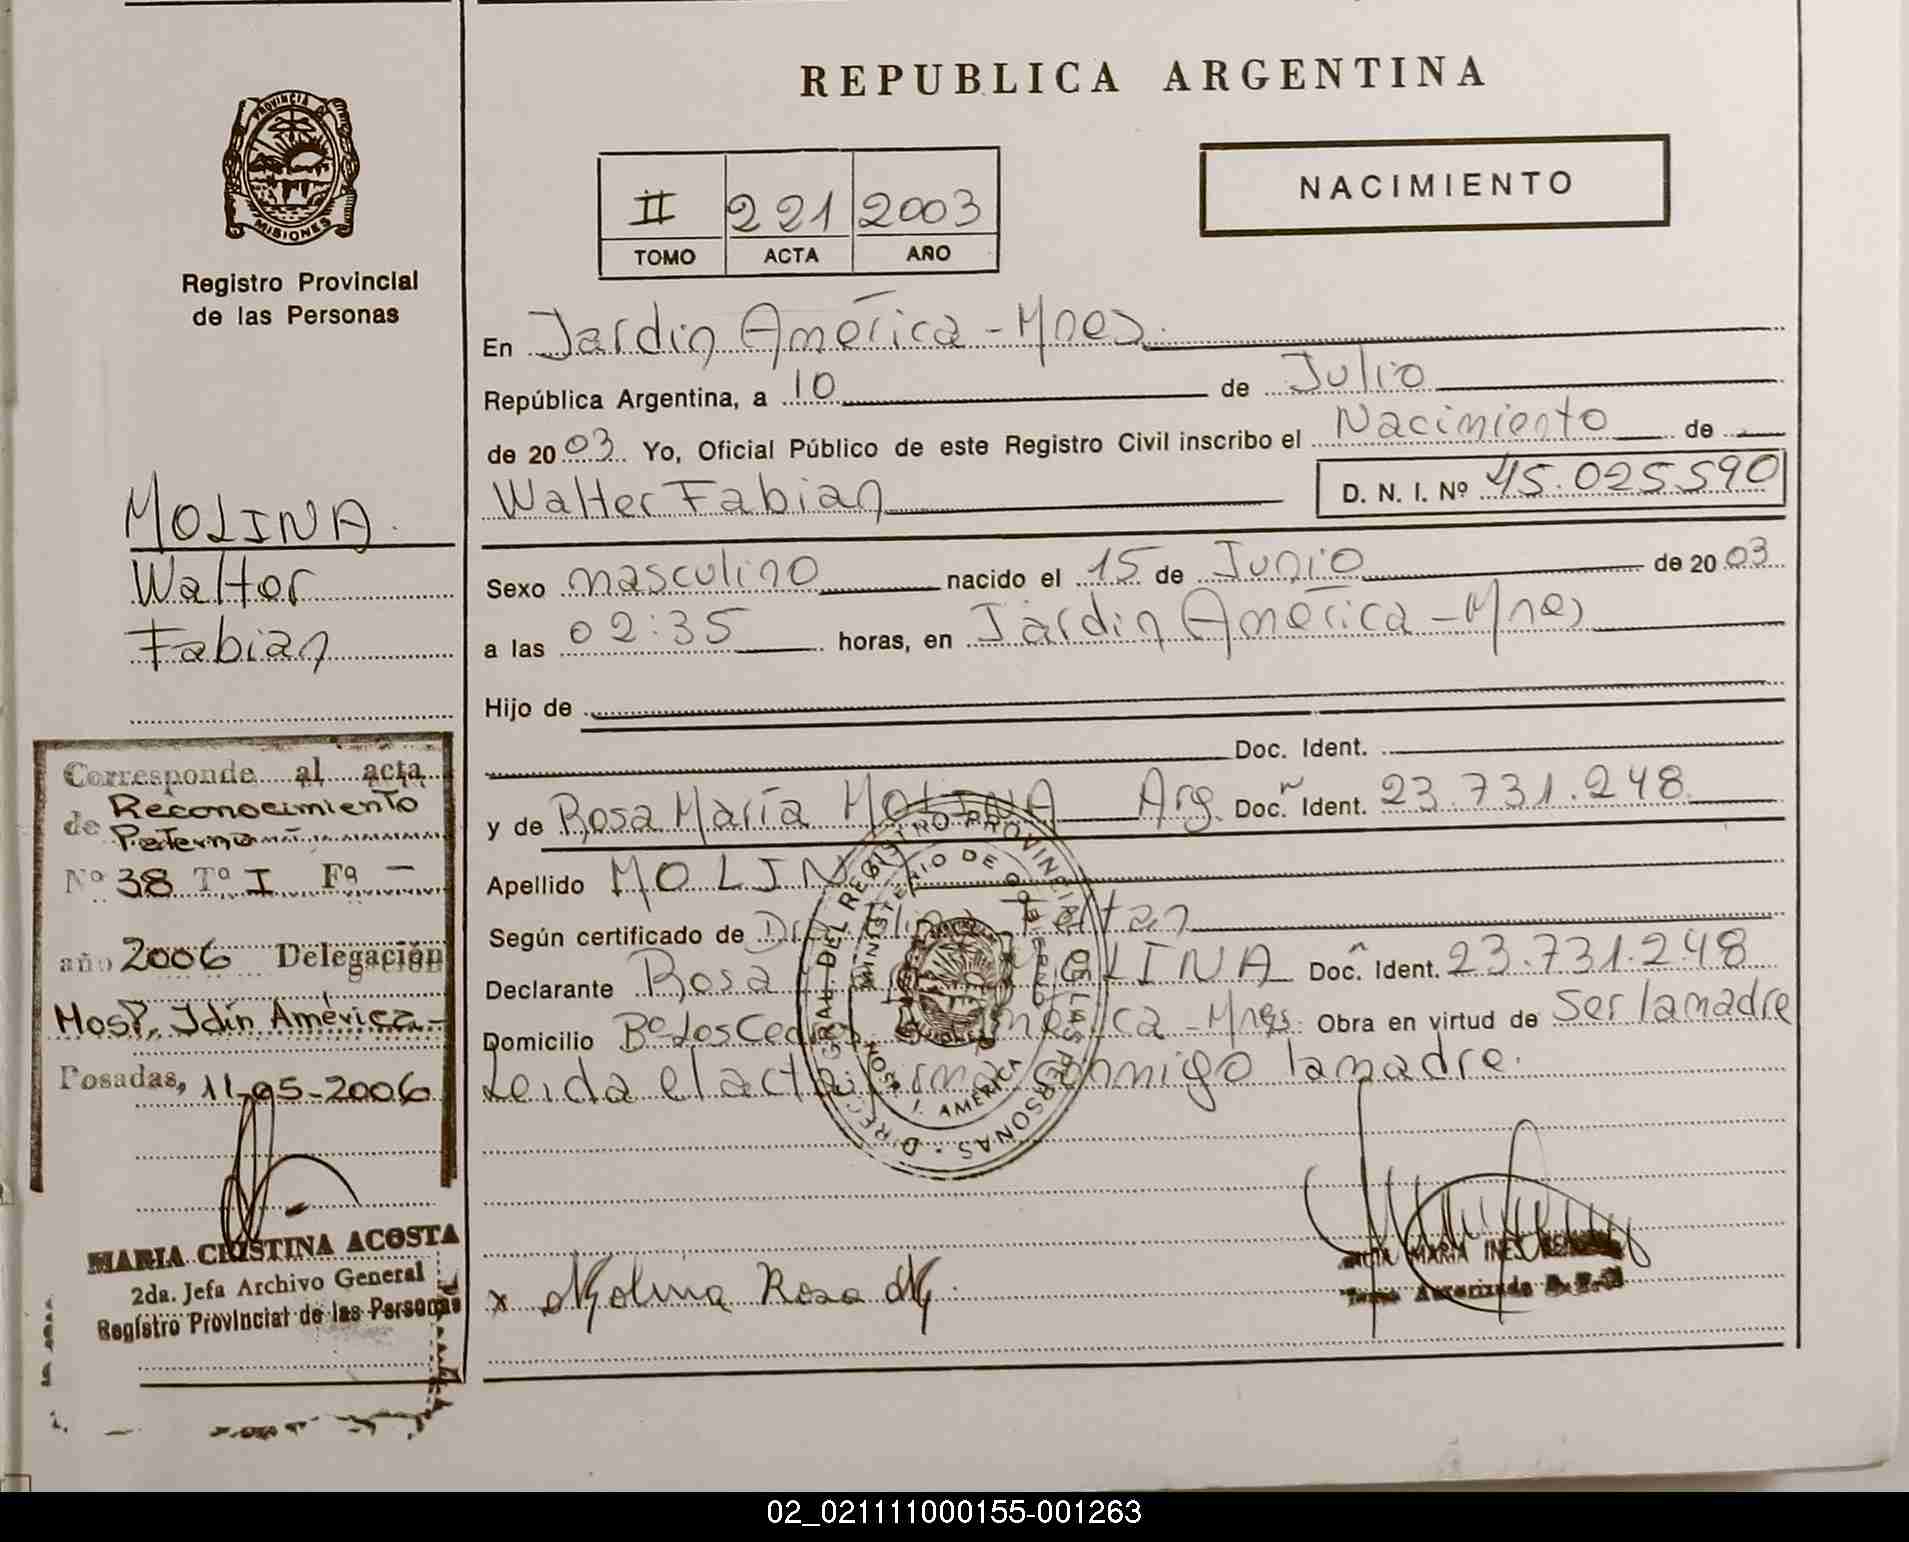 REPUBLICA ARGENTINA
PROVINCIA DE
MISIONES
Registro Provincial
de las Personas
NACIMIENTO
II 221 2003
TOMO ACTA AÑO
En Jardín América - Mnes.
República Argentina, a 10 de Julio
de 2003 Yo, Oficial Público de este Registro Civil inscribo el Nacimiento de
Walter Fabian D. N. I. Nº 45.025.590
Sexo masculino nacido el 15 de Junio de 2003
a las 02:35 horas, en Jardín América - Mnes
Hijo de
Doc. Ident.
y de Rosa María MOLINA Arg. Doc. Ident. 23.731.248
Apellido MOLINA
Según certificado de
Declarante Rosa MOLINA Doc. Ident. 23.731.248
Domicilio Bº Los Ced América - Mnes. Obra en virtud de Ser la madre
Leída el acta firma conmigo la madre.
x Molina Rosa M.
MARIA INES
MOLINA
Walter
Fabian
Corresponde al acta
de Reconocimiento
Paterno
Nº 38 Tº I Fº -
año 2006 Delegación
Hosp. Jdín América -
Posadas, 11-05-2006
MARIA CRISTINA ACOSTA
2da. Jefa Archivo General
Registro Provincial de las Personas
DIRECC GRAL. DEL REGISTRO PROVINCIAL DE LAS PERSONAS
MINISTERIO DE GOB
J. AMERICA
02_021111000155-001263